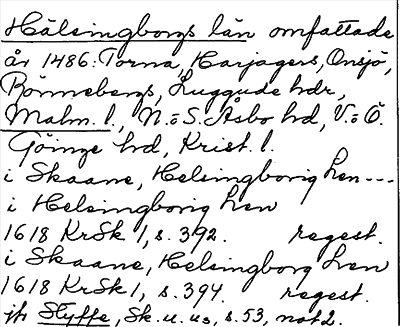 Hälsingborgs län omfattade
år 1486: Torna, Harjagers, Onsjö,
Rönnebergs, Luggude hdr,
Malm. l., N. o S. Åsbo hd, V. o Ö.
Göinge hd, Krist. l.
i Skaane, Helsingborig Len ---
i Helsingborig Len
1618 KrSk 1, s. 392. regest.
i Skaane, Helsingborg Len
1618 KrSk 1, s. 394. regest.
jfr Styffe, Sk. u. u., s. 53, not 2.